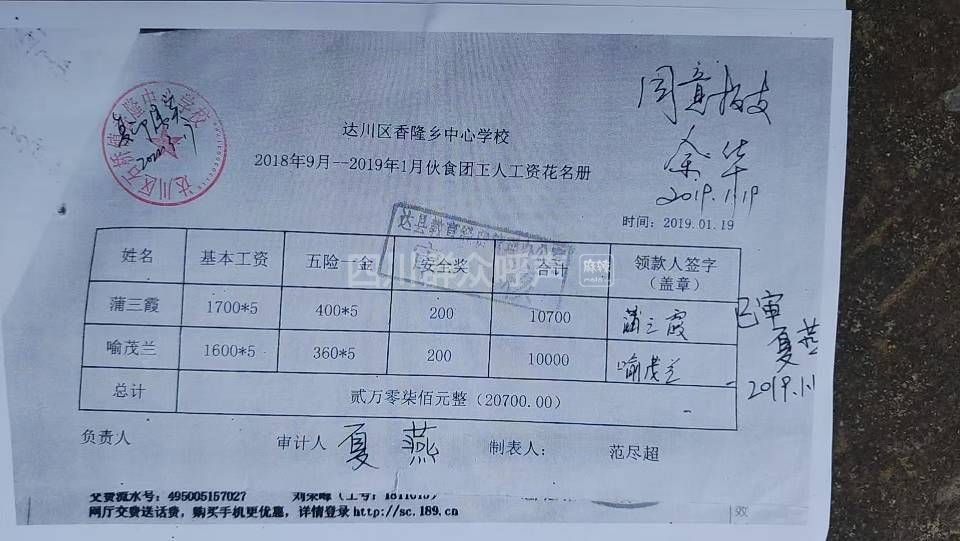 同意报支
余华
2019.1.19
达川区香隆乡中心学校
2018年9月--2019年1月伙食团工人工资花名册
时间：2019.01.19
姓名 基本工资 五险一金 安全奖 合计 领款人签字（盖章）
蒲三霞 1700*5 400*5 200 10700 蒲三霞
喻茂兰 1600*5 360*5 200 10000 喻茂兰
总计 贰万零柒佰元整（20700.00）
已审
夏燕
2019.1.1
负责人 审计人 夏燕 制表人： 范尽超
交费流水号：495005157027
网厅交费送话费，购买手机更优惠，详情登录http://sc.189.cn
效
四川群众呼声
麻辣